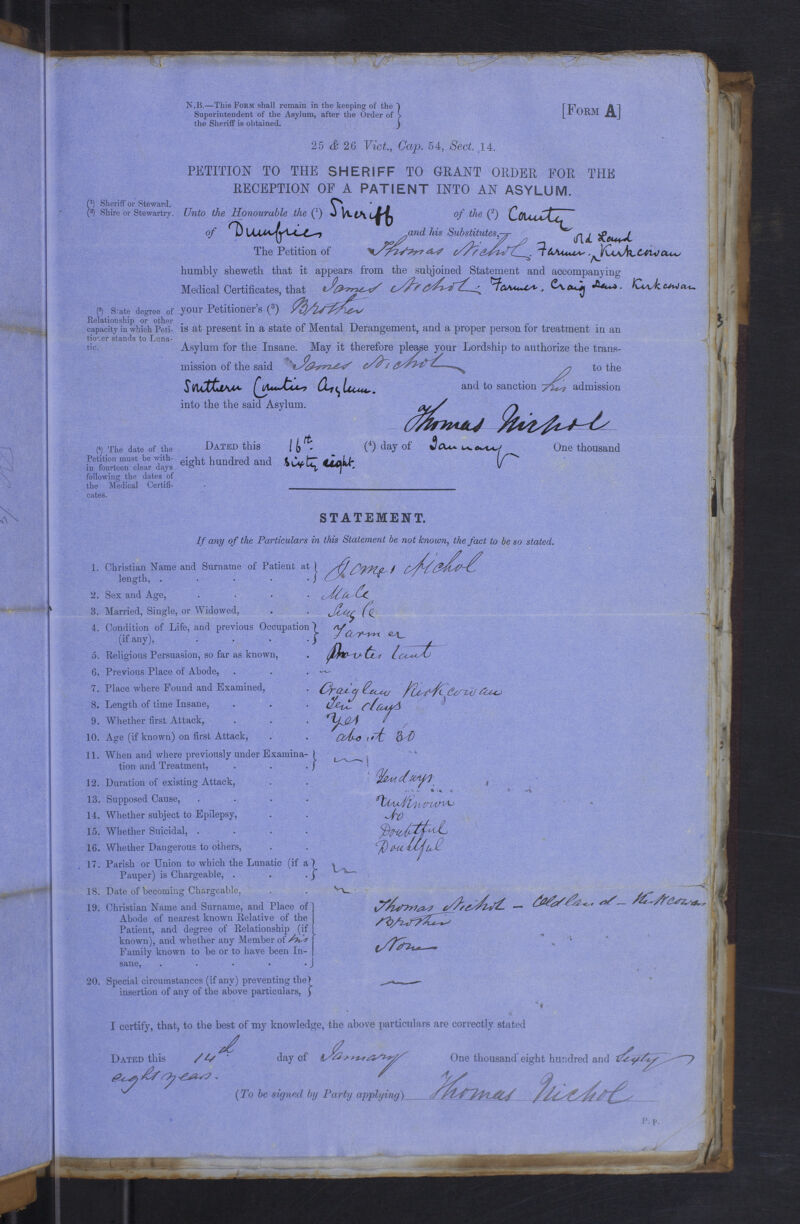 N.B.—This Form shall remain in the keeping of the
Superintendent of the Asylum, after the Order of
the Sheriff is obtained.
[Form A]
25 & 26 Vict., Cap. 54, Sect. 14.
PETITION TO THE SHERIFF TO GRANT ORDER FOR THE
RECEPTION OF A PATIENT INTO AN ASYLUM.
(1) Sheriff or Steward.
(2) Shire or Stewartry.
Unto the Honourable the (1) Sheriff of the (2) County
of Dumfries and his Substitutes,
The Petition of Thomas Nichol, Farmer, Old Land Kirkcowan
humbly sheweth that it appears from the subjoined Statement and accompanying
Medical Certificates, that James Nichol, Farmer, Craig Law. Kirkcowan
(3) State degree of
Relationship or other
capacity in which Peti-
tioner stands to Luna-
tic.
your Petitioner's (3) Brother
is at present in a state of Mental Derangement, and a proper person for treatment in an
Asylum for the Insane. May it therefore please your Lordship to authorize the trans-
mission of the said James Nichol to the
Southern Counties Asylum. and to sanction his admission
into the the said Asylum.
Thomas Nichol
(4) The date of the
Petition must be with-
in fourteen clear days
following the dates of
the Medical Certifi-
cates.
Dated this 16th. (4) day of January One thousand
eight hundred and sixty eight.
STATEMENT.
If any of the Particulars in this Statement be not known, the fact to be so stated.
1. Christian Name and Surname of Patient at
length, . . . . . James Nichol
2. Sex and Age, . . . . Male
3. Married, Single, or Widowed, . . Single
4. Condition of Life, and previous Occupation
(if any), . . . . Farmer
5. Religious Persuasion, so far as known, . Protestant
6. Previous Place of Abode, . . . —
7. Place where Found and Examined, . Craiglaw Kirkcowan
8. Length of time Insane, . . . Ten days
9. Whether first Attack, . . . Yes
10. Age (if known) on first Attack, . . about 30
11. When and where previously under Examina-
tion and Treatment, . . . —
12. Duration of existing Attack, . . Ten days
13. Supposed Cause, . . . . Unknown
14. Whether subject to Epilepsy, . . No
15. Whether Suicidal, . . . . Doubtful
16. Whether Dangerous to others, . . Doubtful
17. Parish or Union to which the Lunatic (if a
Pauper) is Chargeable, . . . —
18. Date of becoming Chargeable, . . —
19. Christian Name and Surname, and Place of
Abode of nearest known Relative of the
Patient, and degree of Relationship (if
known), and whether any Member of his
Family known to be or to have been In-
sane, . . . . . .
Thomas Nichol – Oldland – Kirkcowan
Brother
None
20. Special circumstances (if any) preventing the
insertion of any of the above particulars, —
I certify, that, to the best of my knowledge, the above particulars are correctly stated
Dated this 14th day of January One thousand eight hundred and Sixty
eight years.
(To be signed by Party applying) Thomas Nichol
P. P.